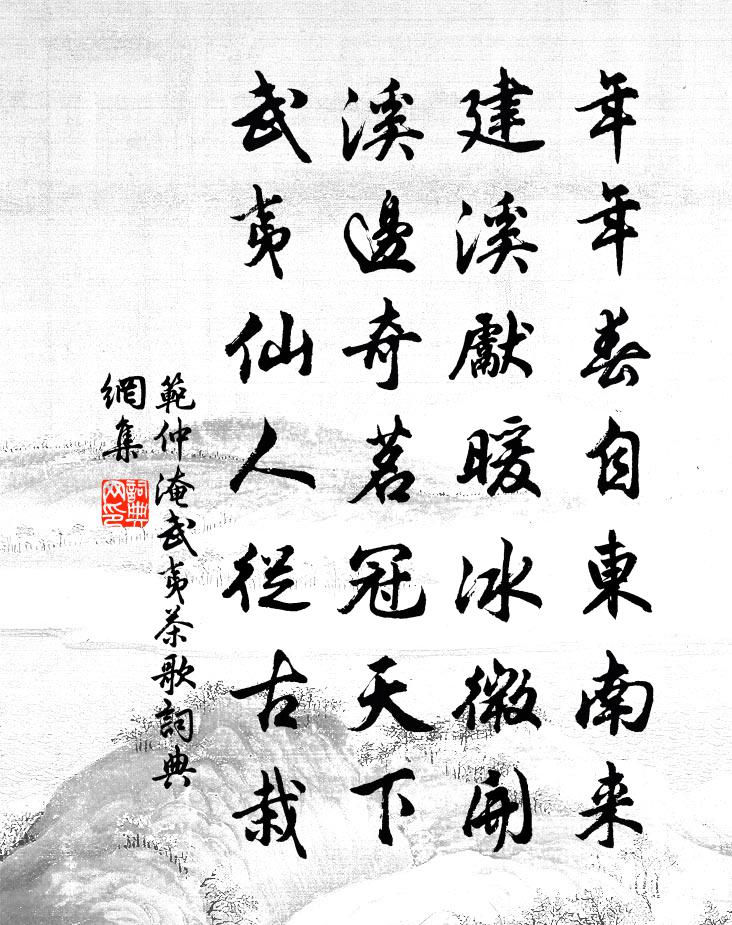 年年春自東南来
建溪獻暖冰微開
溪邊奇茗冠天下
武夷仙人從古栽
範仲淹武夷茶歌詞典
網集
詞典
网印